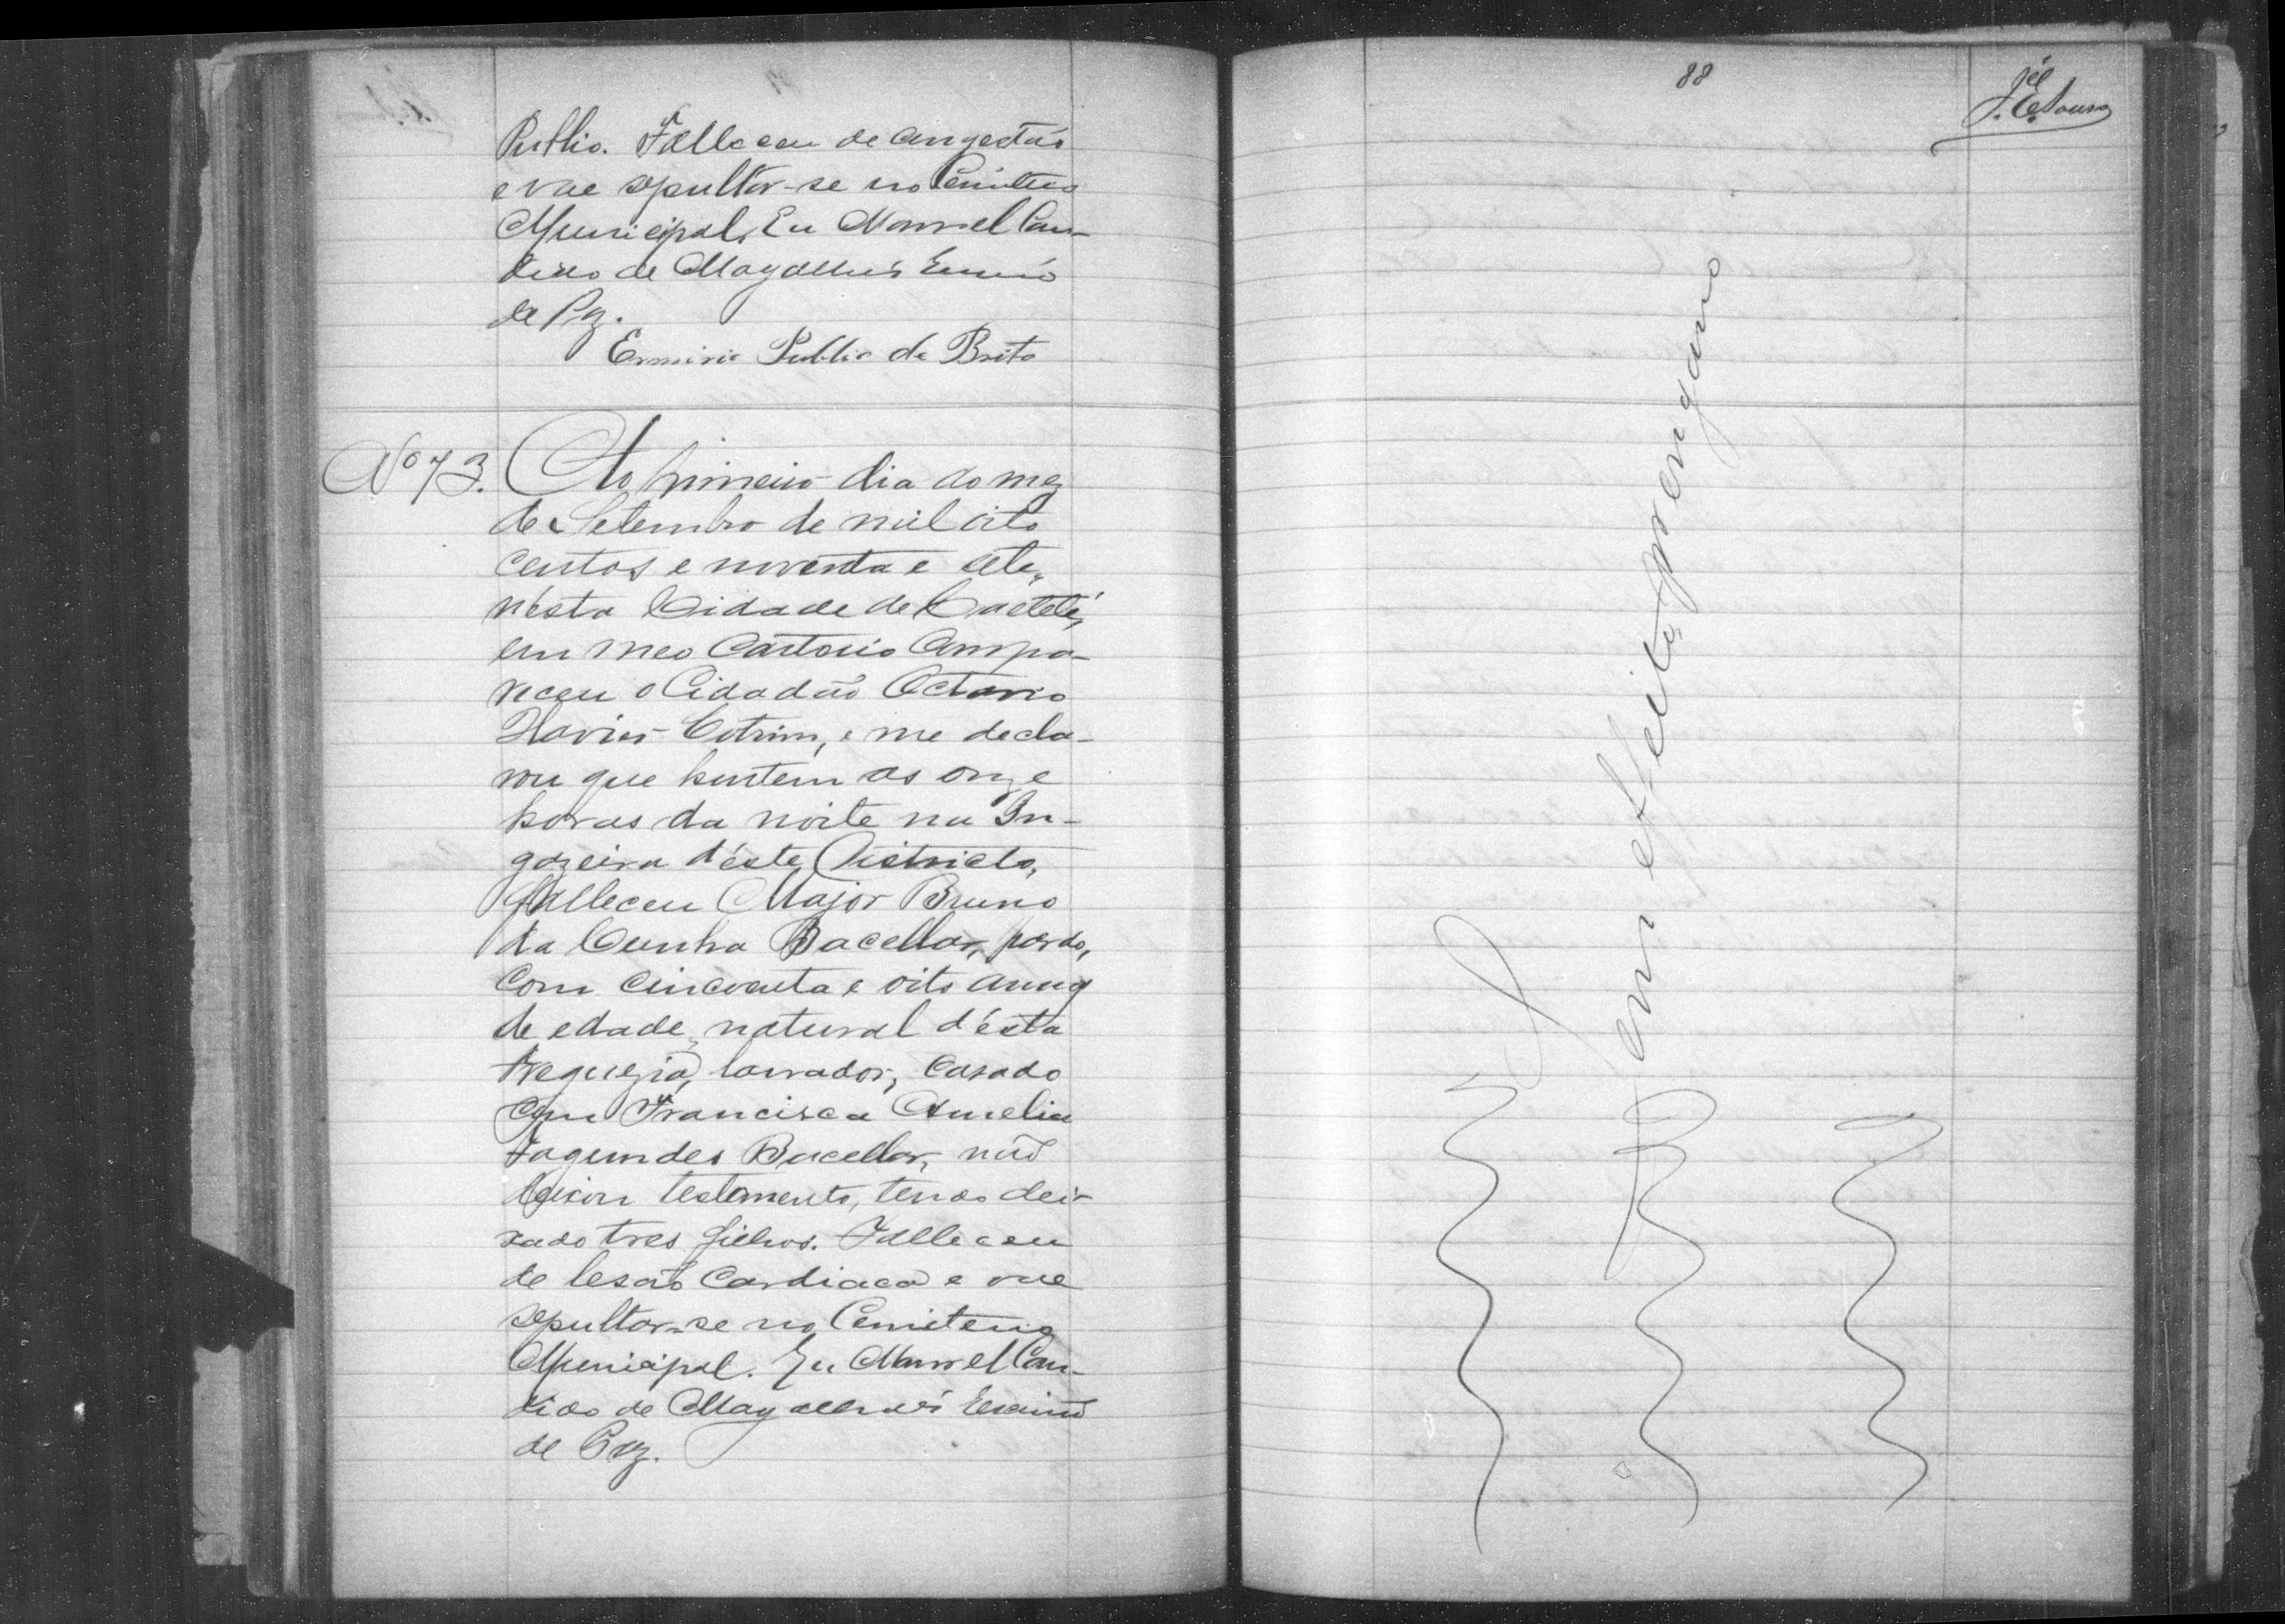 Publio. Falleceu de congestão
e vae sepultar-se no Cemiterio
Municipal. Eu Manoel Can-
dido de Magalhães Escrivão
de Paz.
Ermirio Publio de Brito
Nº 73. Ao primeiro dia do mez
de Setembro de mil oito
centos e noventa e sete,
nésta Cidade de Caeteté,
em meo Cartorio compa-
receu o Cidadão Octavio
Xavier Cotrim, e me decla-
rou que hontem as onze
horas da noite na In-
gazeira d'éste Districto,
falleceu Major Bruno
da Cunha Bacellar, pardo,
com cincoenta e oito annos
de edade, natural d'ésta
freguezia, lavrador, casado
com Francisca Amelia
Fagundes Bacellar, não
deixou testamento, tendo dei-
xado tres filhos. Falleceu
de lesão cardiaca e vae
sepultar-se no Cemiterio
Municipal. Eu Manoel Can-
dido de Magalhães Escrivão
de Paz.
88
J. E. Sousa
Sem effeito, por engano